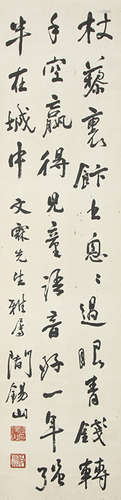 杖藜裹飰去匆匆過眼青錢轉
手空贏得兒童語音好一年强
半在城中 文霖先生雅属 閻錫山